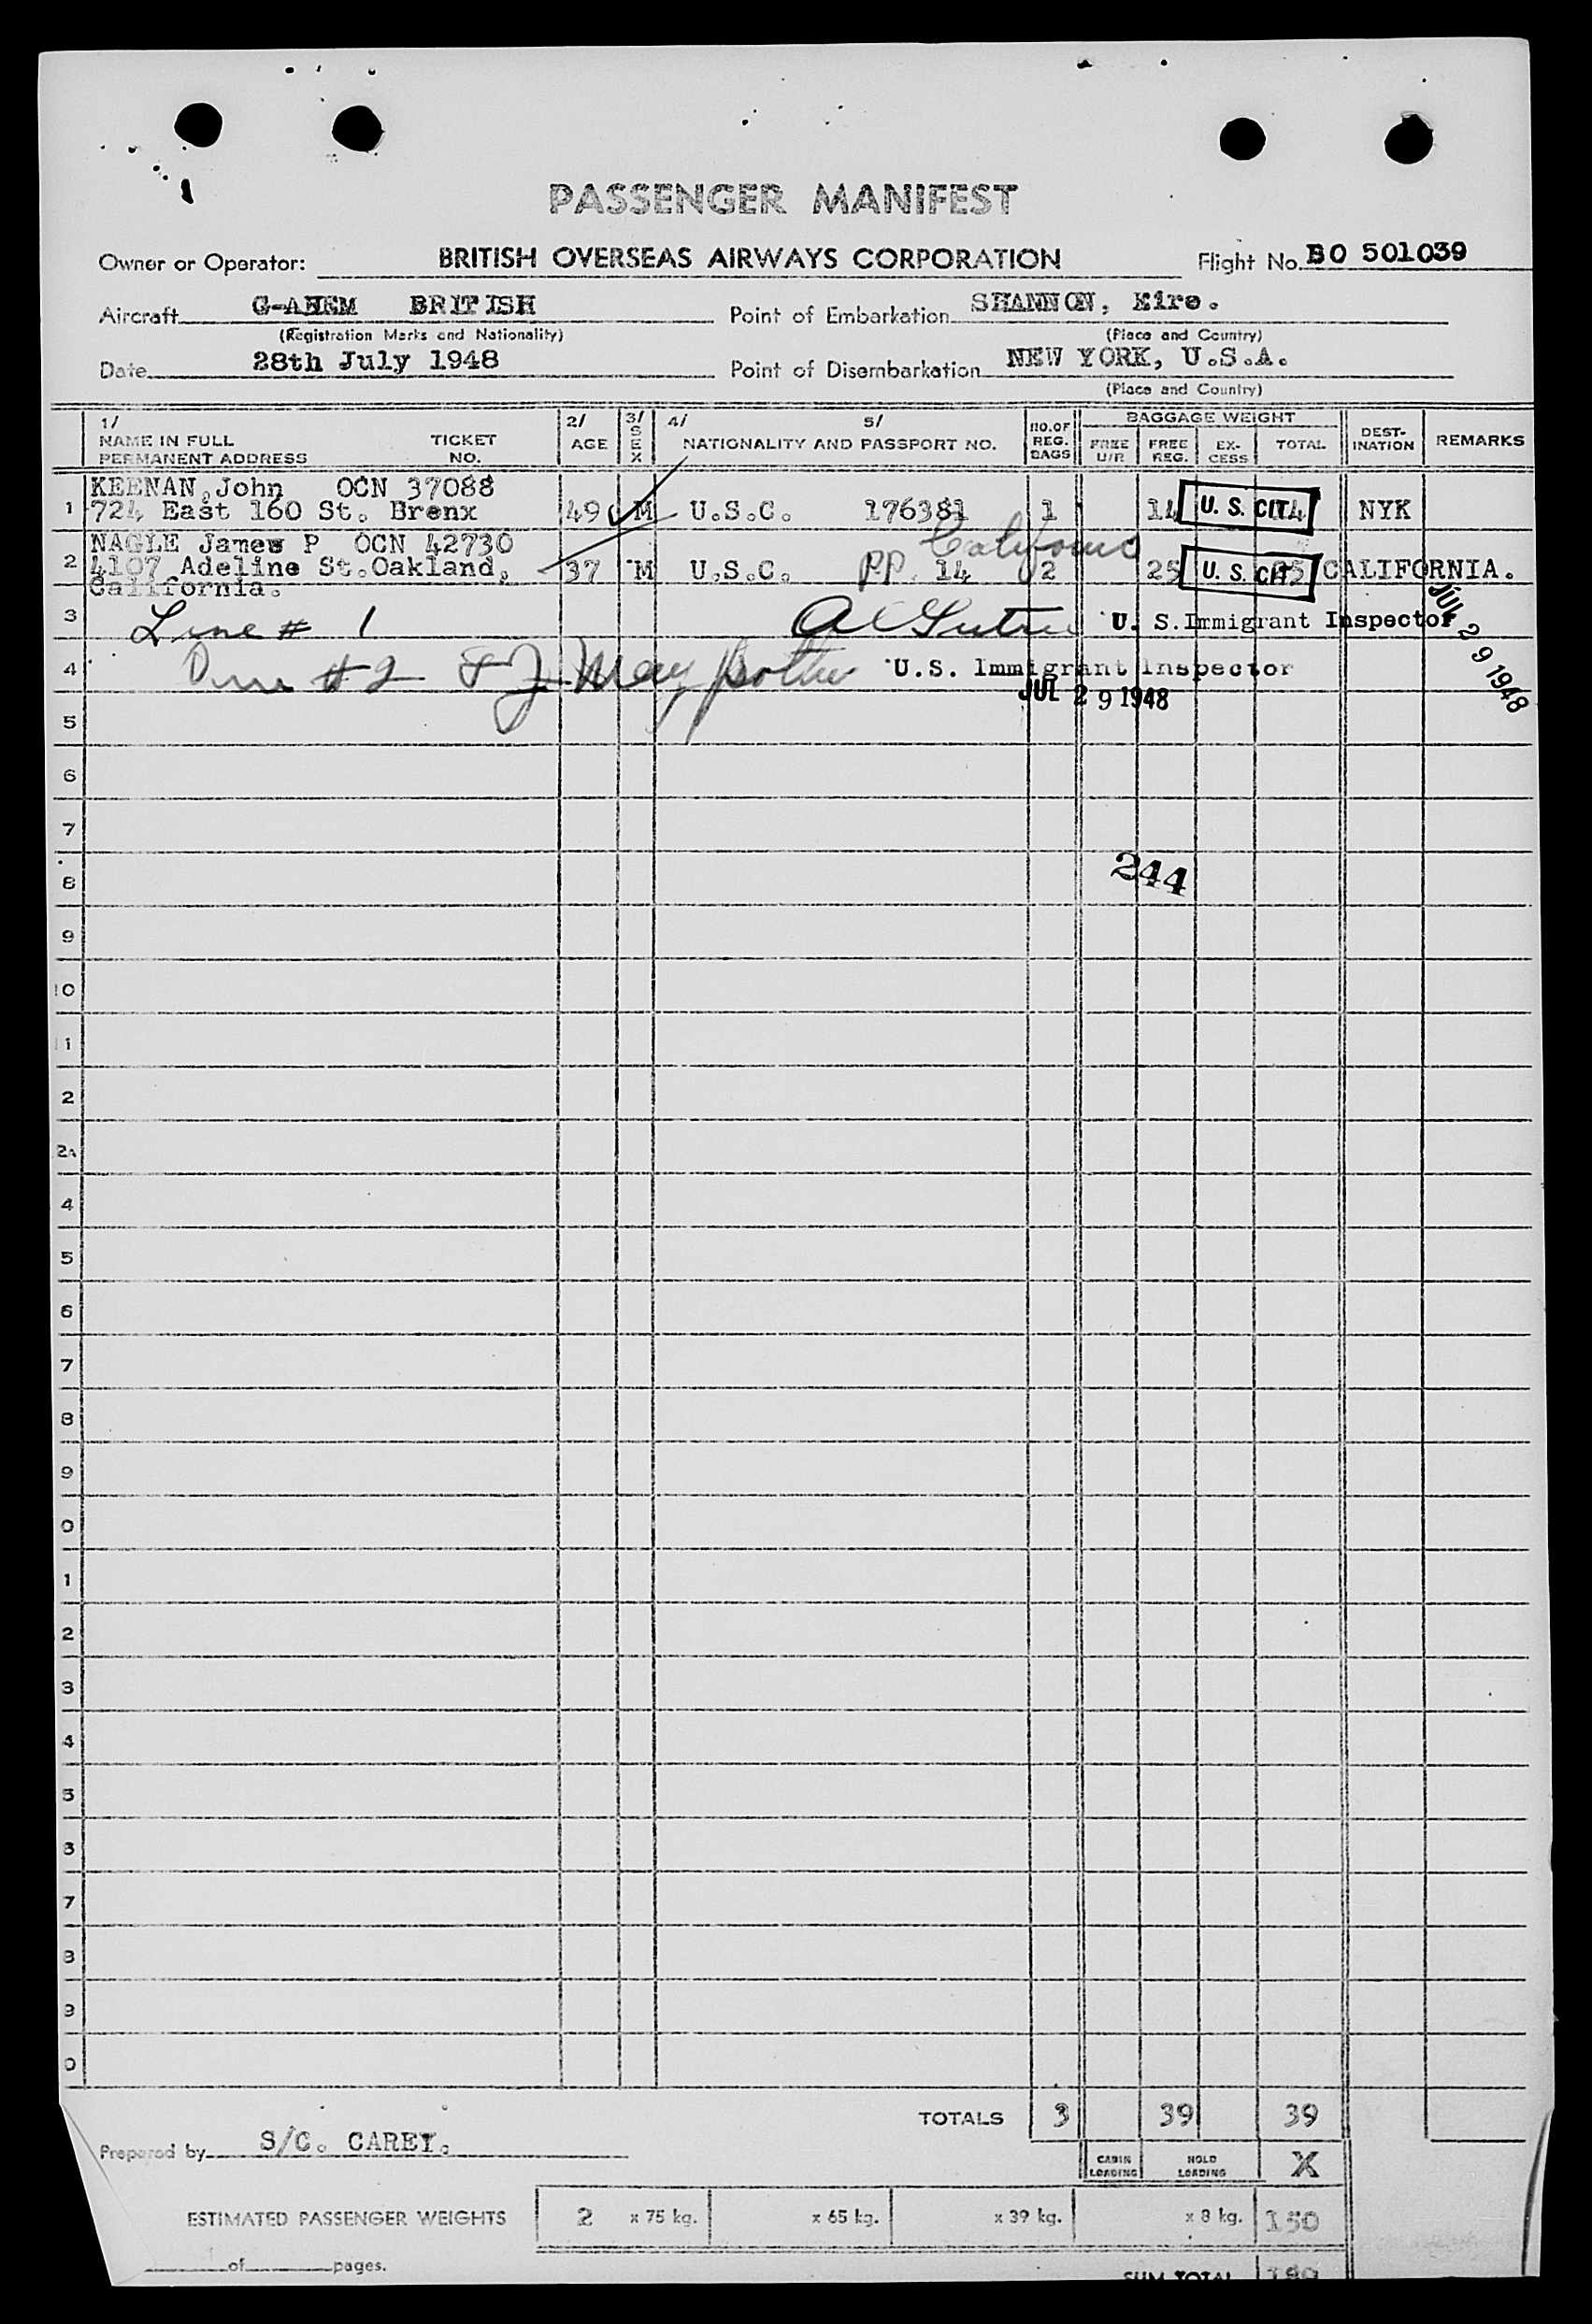 PASSENGER MANIFEST
Owner or Operator: BRITISH OVERSEAS AIRWAYS CORPORATION Flight No. BO 501039
Aircraft G-AHEM BRITISH Point of Embarkation SHANNON, Eire.
(Registration Marks and Nationality) (Place and Country)
Date 28th July 1948 Point of Disembarkation NEW YORK, U.S.A.
(Place and Country)
1/ 2/ 3/ 4/ 5/ NO. OF REG. BAGS BAGGAGE WEIGHT
NAME IN FULL TICKET AGE SEX NATIONALITY AND PASSPORT NO. FREE U/R FREE REG. EX-CESS TOTAL DEST-INATION REMARKS
PERMANENT ADDRESS NO.
KEENAN, John OCN 37088
1 724 East 160 St. Brenx 49 M U.S.C. 176381 1 14 U. S. CIT. 14 NYK
NAGLE James P OCN 42730 California
2 4107 Adeline St. Oakland, 37 M U.S.C. PP. 14 2 25 U. S. CIT 25 CALIFORNIA.
California.
3 Line # 1 U. S. Immigrant Inspector
JUL 29 1948
4 #2 U.S. Immigrant Inspector
JUL 29 1948
5
6
7
244
8
9
10
11
2
2A
4
5
6
7
8
9
0
1
2
3
4
5
6
7
8
9
0
TOTALS 3 39 39
Prepared by S/O. CAREY. CABIN LOADING HOLD LOADING X
ESTIMATED PASSENGER WEIGHTS 2 x 75 kg. x 65 kg. x 39 kg. x 8 kg. 150
of pages.
SUM TOTAL 189